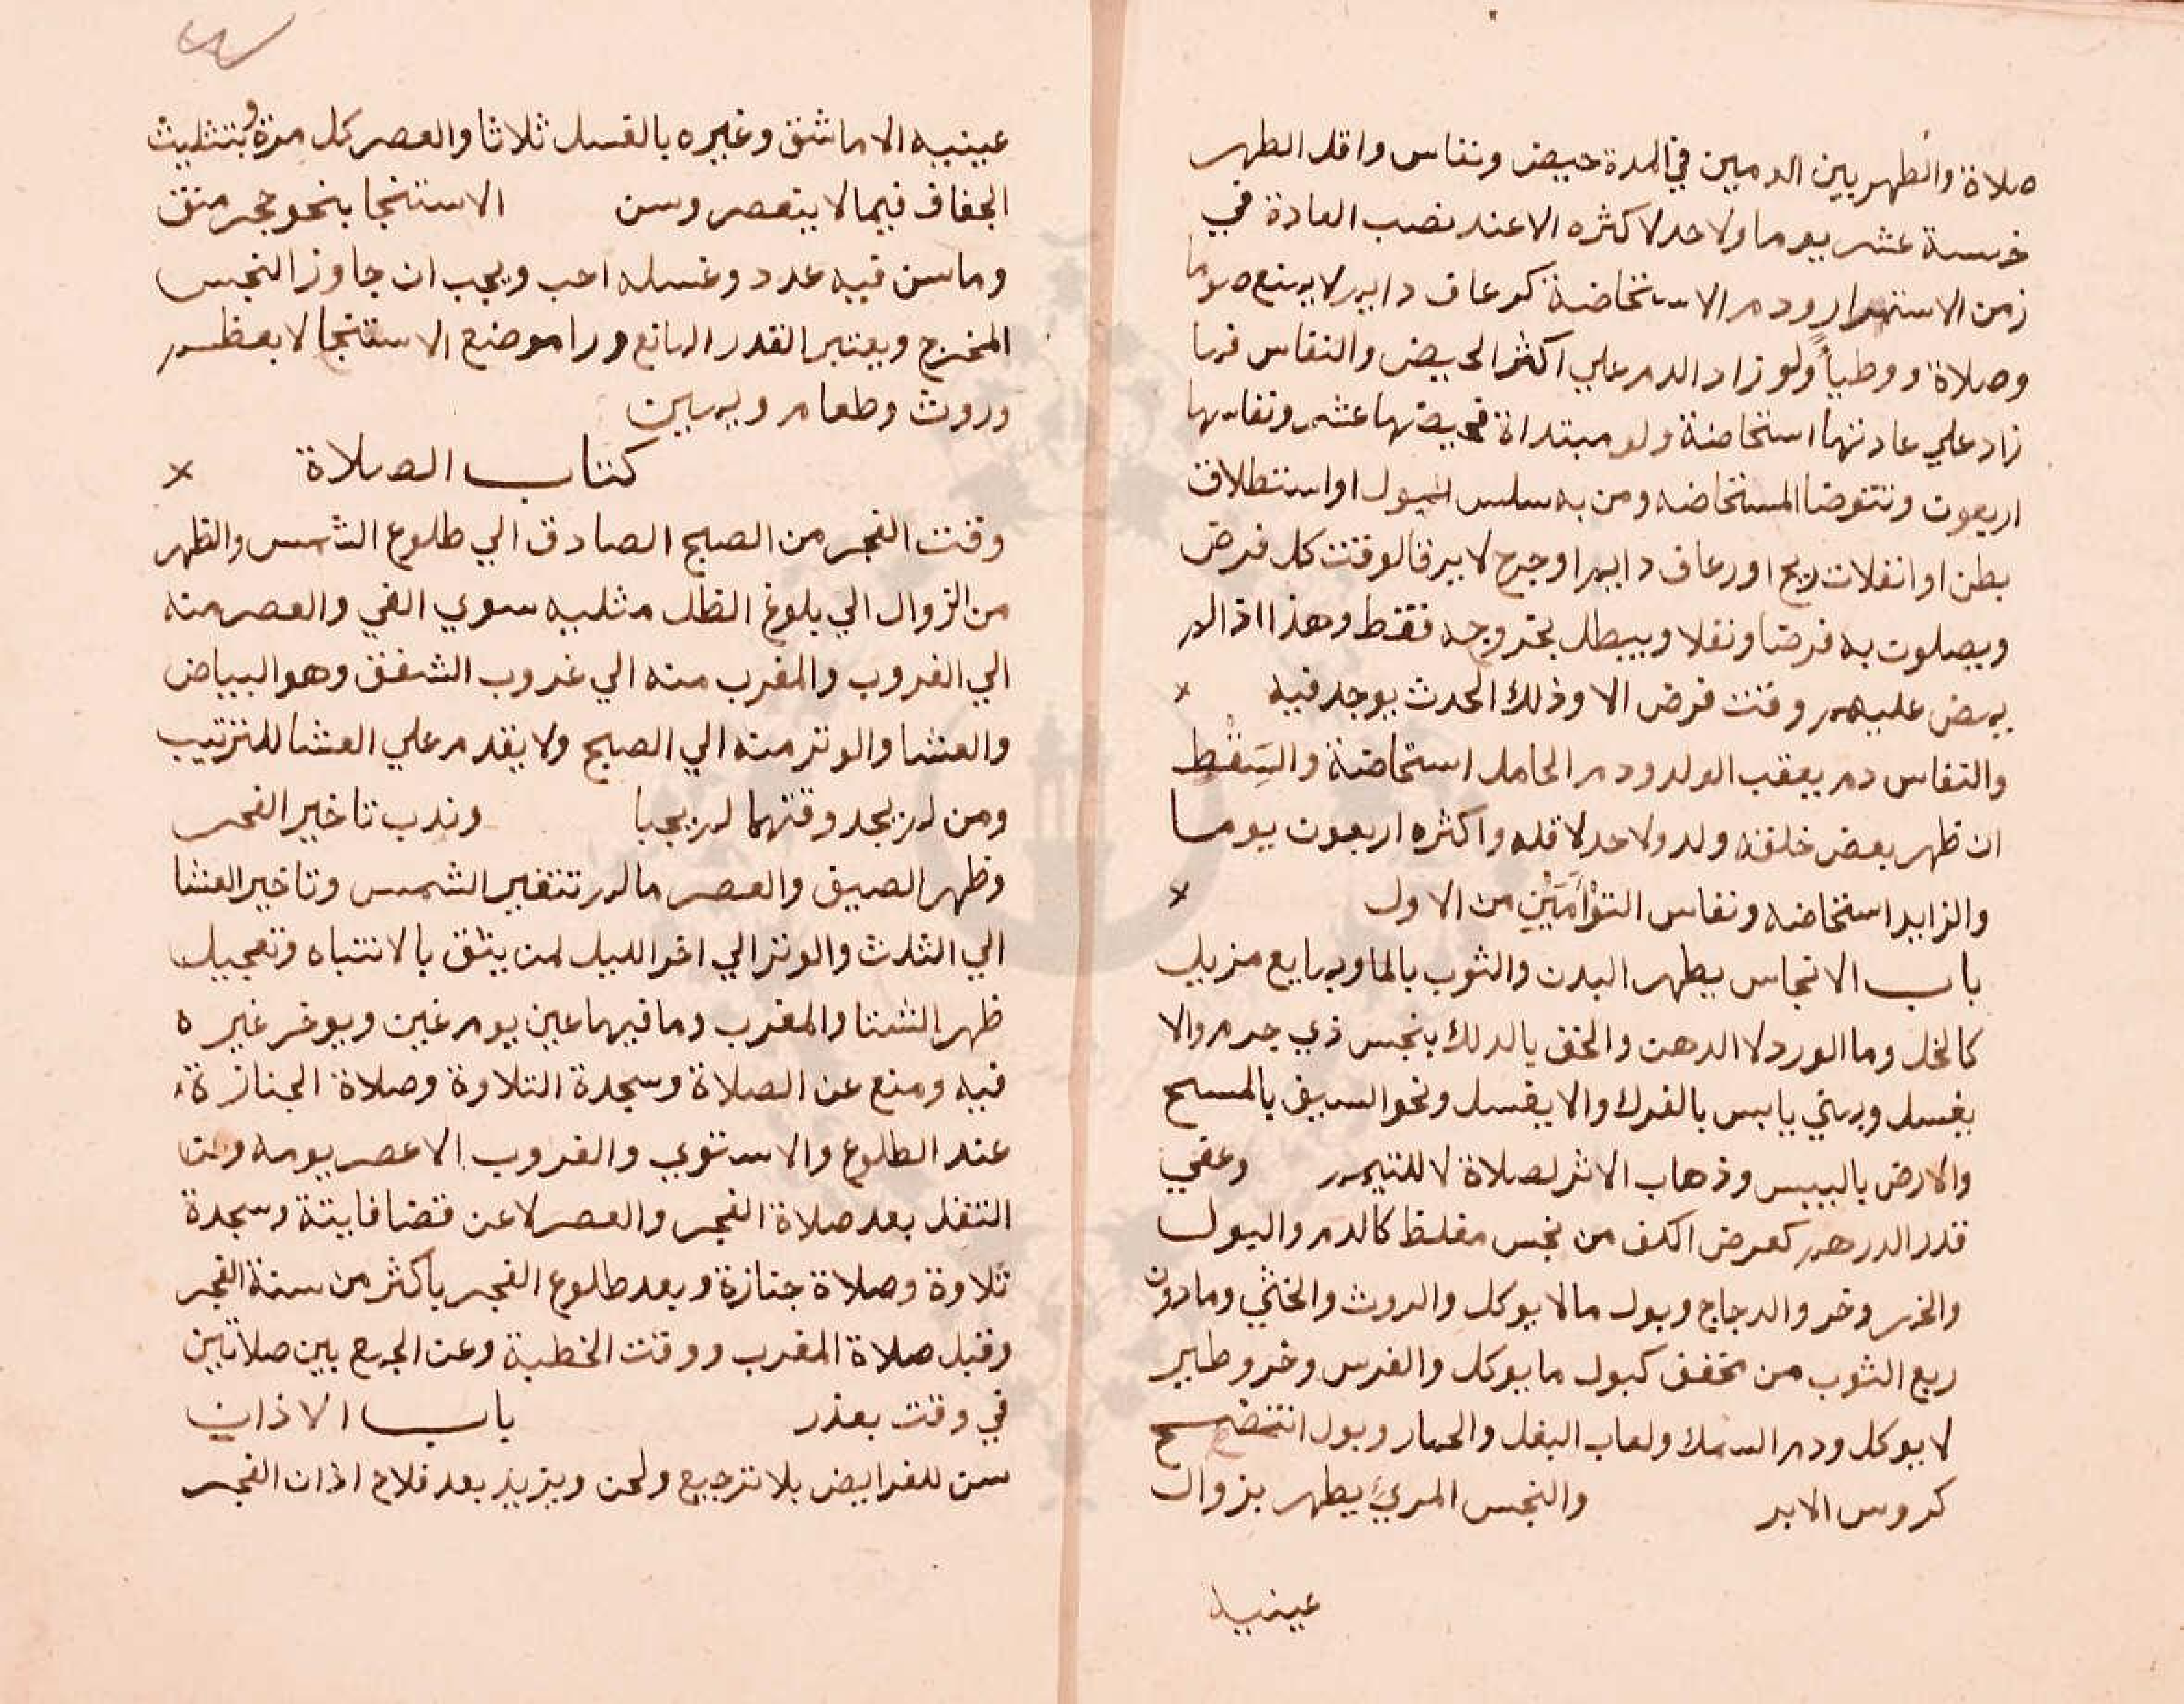 صلاة والطهر بين الدمين في المدة حيض ونفاس واقل الطهر
خمسة عشر يوما ولا حد لاكثره الا عند نصب العادة في
زمن الاستمرار ودم الاستحاضة كرعاف دايم لا يمنع صوما
وصلاة ووطياً ولو زاد الدم علي اكثر الحيض والنفاس فما
زاد علي عادتها استحاضة ولو مبتداة فحيضها عشر ونفاسها
اربعون وتتوضا المستحاضه ومن به سلس البول او استطلاق
بطن او انفلات ريح او رعاف دايم او جرح لا يرقا لوقت كل فرض
ويصلون به فرضا ونفلا ويبطل بخروجه فقط وهذا اذا لم
يمض عليهم وقت فرض الا وذلك الحدث يوجد فيه
والنفاس دم يعقب الولد ودم الحامل استحاضة والسَِقْط
ان ظهر بعض خلقه ولد ولا حد لاقله واكثره اربعون يوما
والزايد استحاضه ونفاس التوْأَمَيْنِ من الاول
باب الانجاس يطهر البدن والثوب بالما وبمايع مزيل
كالخل وما الورد لا الدهن والخف بالدلك بنجس ذي جرم والا
يغسل وبمني يابس بالفرك والا يغسل ونحو السيف بالمسح
والارض باليبس وذهاب الاثر لصلاة لا للتيمم وعفي
قدر الدرهم كعرض الكف من نجس مغلظ كالدم والبول
والخمر وخرو الدجاج وبول ما لا يوكل والروث والخثي وما دون
ربع الثوب من مخفف كبول ما يوكل والفرس وخرو طير
لا يوكل ودم السمك ولعاب البغل والحمار وبول انتضح
كروس الابر والنجس المريُ يطهر بزوال
عينيه
عينيه الا ما شق وغيره بالغسل ثلاثا والعصر كل مرة وبتثليث
الجفاف فيما لا ينعصر وسن الاستنجا بنحو حجر منق
وما سن فيه عدد وغسله احب ويجب ان جاوز النجس
المخرج ويعتبر القدر المانع ورا موضع الاستنجا لا بعظم
وروث وطعام ويمين
كتاب الصلاة
وقت الفجر من الصبح الصادق الي طلوع الشمس والظهر
من الزوال الي بلوغ الظل مثليه سوي الفي والعصر منه
الي الغروب والمغرب منه الي غروب الشفق وهو البياض
والعشا والوتر منه الي الصبح ولا يقدم علي العشا للترتيب
ومن لم يجد وقتهما لم يجبا وندب تاخير الفجر
وظهر الصيف والعصر ما لم تتغير الشمس وتاخير العشا
الي الثلث والوتر الي اخر الليل لمن يثق بالانتباه وتعجيل
ظهر الشتا والمغرب وما فيها عين يوم غين ويوخر غيره
فيه ومنع عن الصلاة وسجدة التلاوة وصلاة الجنازة
عند الطلوع والاستوي والغروب الا عصر يومه وعن
التنفل بعد صلاة الفجر والعصر لا عن قضا فايتة وسجدة
تلاوة وصلاة جنازة وبعد طلوع الفجر باكثر من سنة الفجر
وقبل صلاة المغرب ووقت الخطبة وعن الجمع بين صلاتين
في وقت بعذر باب الاذان
سن للفرايض بلا ترجيع ولحن ويزيد بعد فلاح اذان الفجر